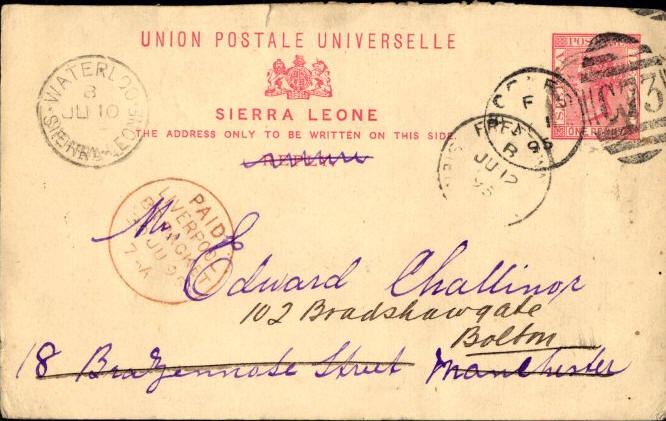 UNION POSTALE UNIVERSELLE
SIERRA LEONE
THE ADDRESS ONLY TO BE WRITTEN ON THIS SIDE.
WATERLOO
B
JU 10
SIERRA-LEONE
POSTAGE
ONE PENNY
B
JU 12
95
PAID
LIVERPOOL
BR PACKET
JU 95
Mr
Edward Challinor
102 Bradshawgate
Bolton
18 Brazennose Street Manchester